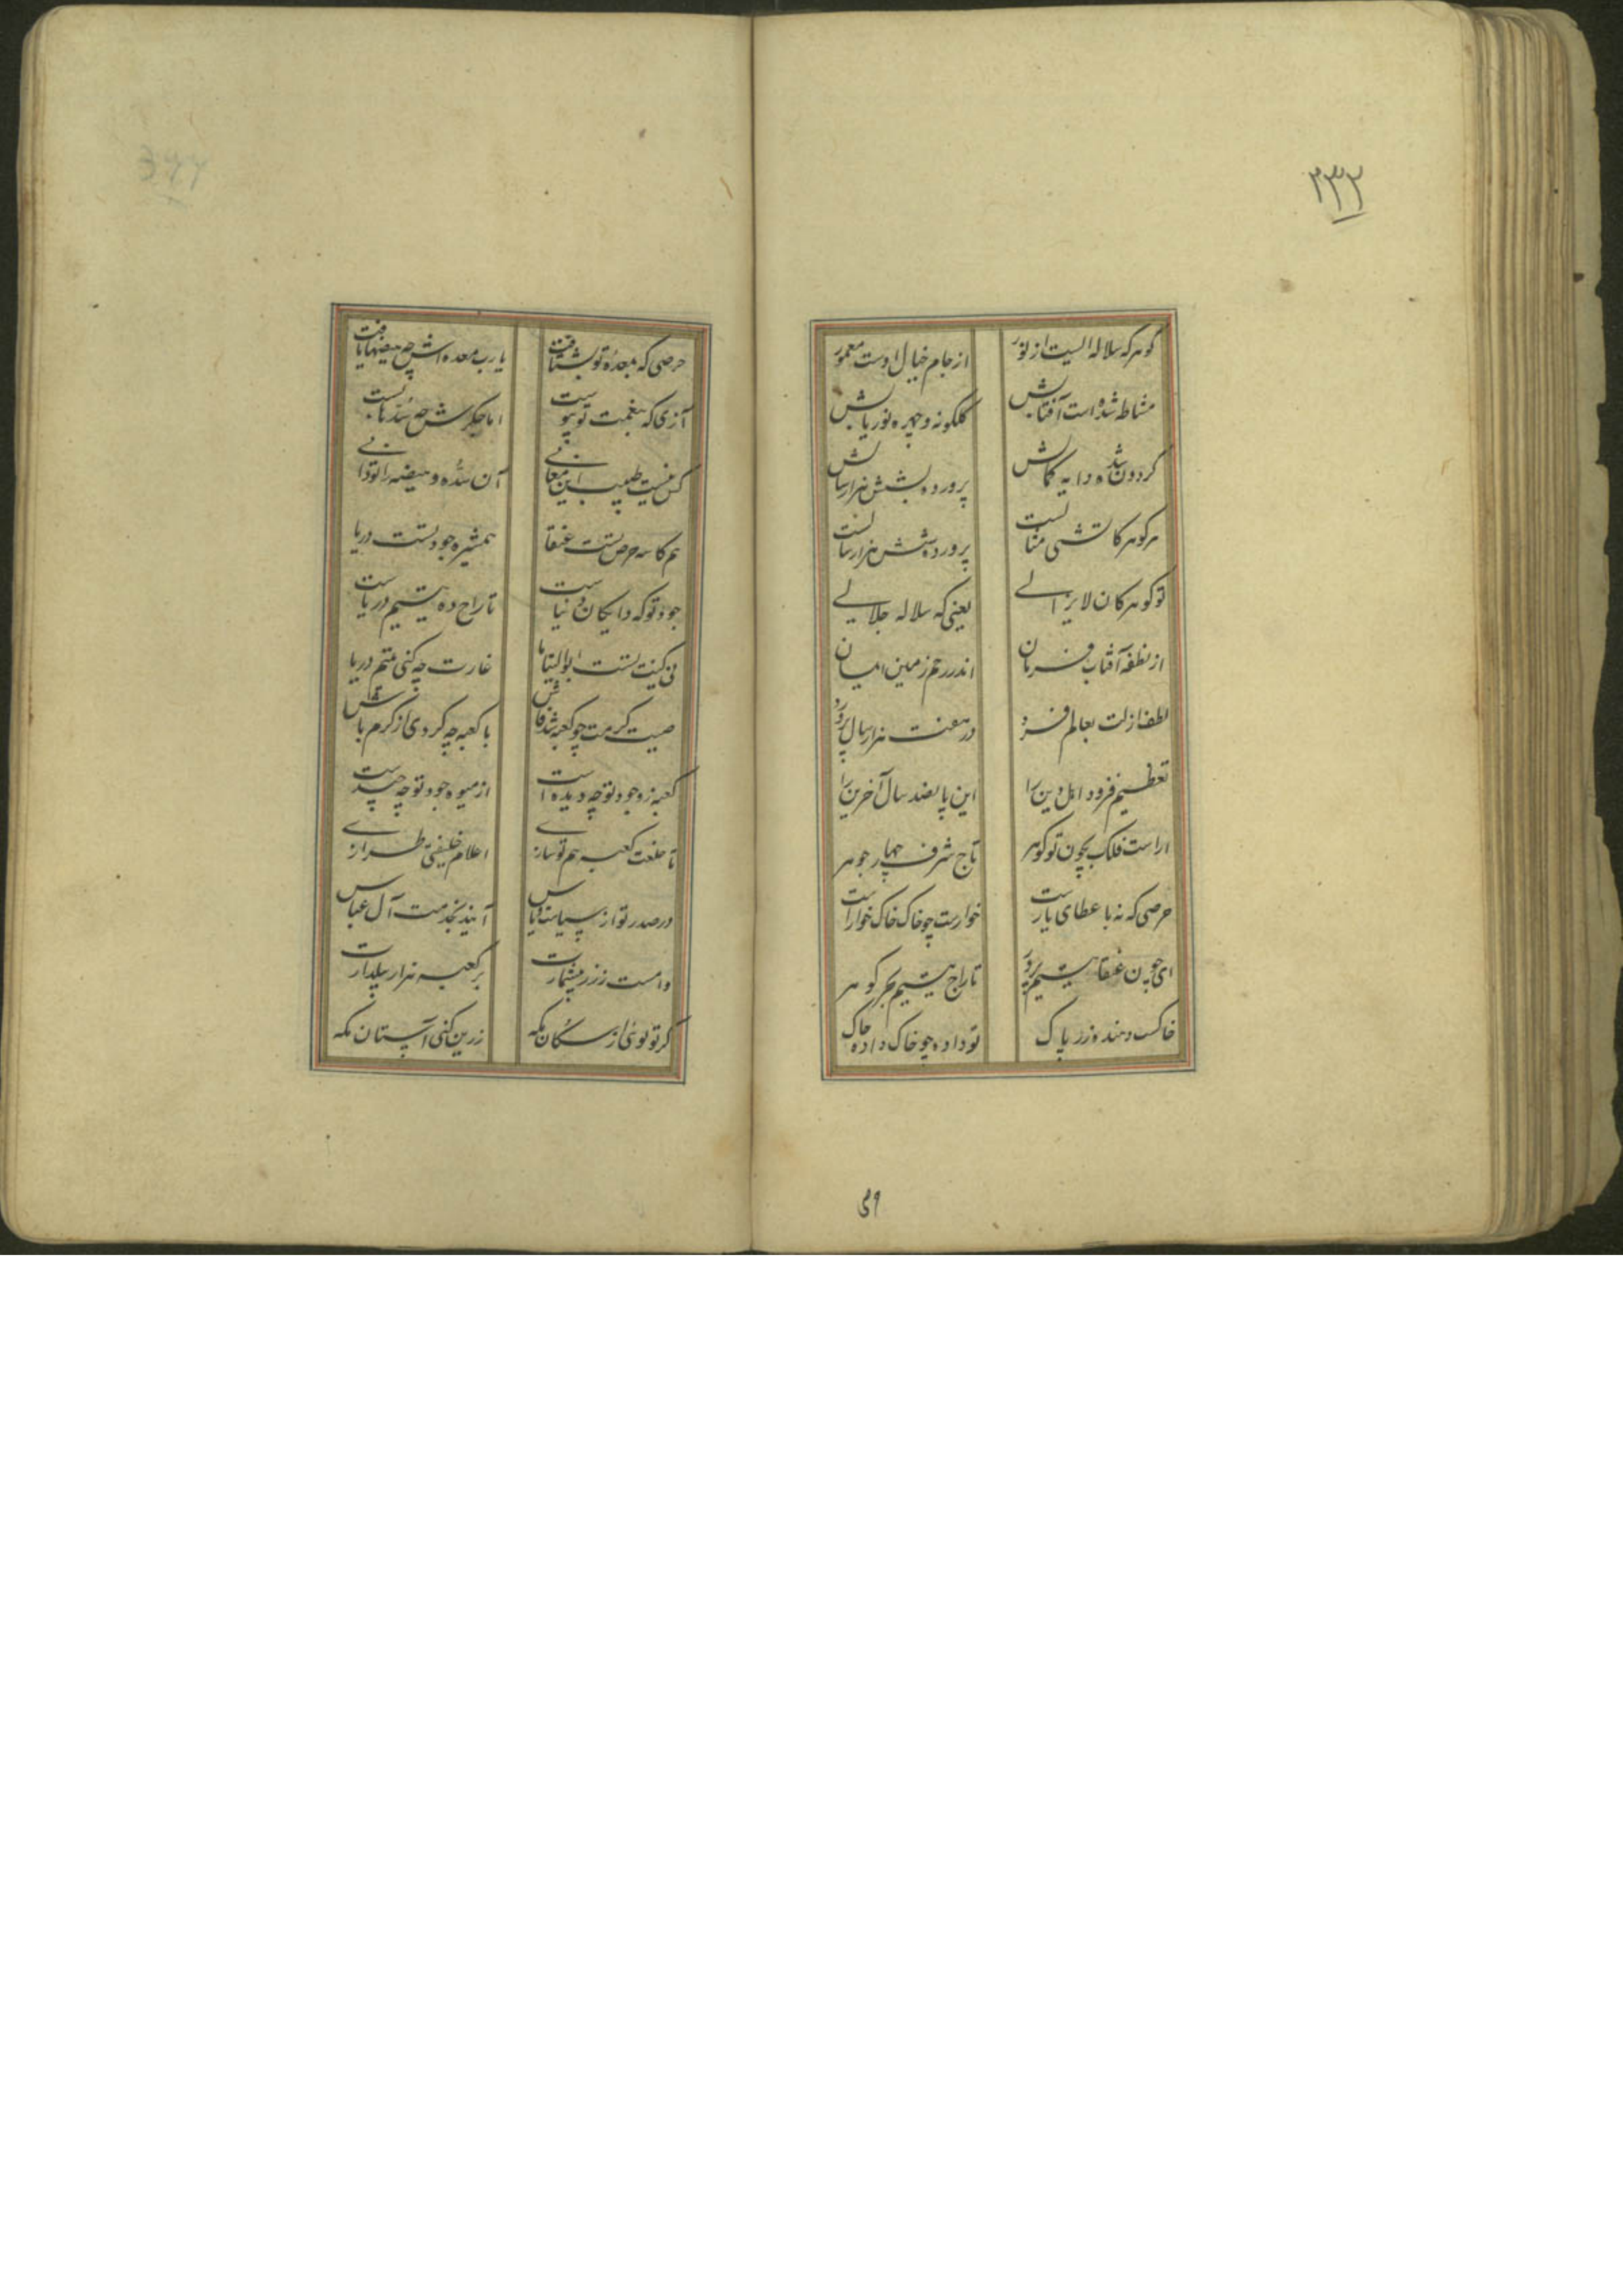 ۲۳۲
گوهر که سلاله الیست از نور از جام خیال اوست معمور
مشاطه شده است آفتابش گلگونه و چهره نور یابش
گردون شده دایه کمالش پرورده بشش هزار سالش
هر گوهر کاتشی مثالست پرورده شش هزار سالست
تو گوهر کان لایزالے یعنی که سلاله جلالیے
از نطفه آفتاب فرمان اندر رحم زمین
لطف ازلت بعالم فرد در هفت هزار سال پرورد
تعظیم فزود اهل دین را این پانصد سال آخرین را
اراست فلک بچون تو گوهر تاج شرف چهار جوهر
حرصی که نه با عطای یارست خوارست چو خاک خاک خوارست
ای چون عنقا یتیم پرور تاراج یتیم بحر گوهر
خاکست دهنده زر پاک تو داده چو خاک داده خاک
۳۹
377
حرصی که بمعده تو بشتافت یارب معده اش چه هیضها یافت
آزی که بنعمت تو پیوست اما جگرش چه سدها بست
کس نیست طبیب این معانی آن سده و هیضه را تو دانی
هم کاسه حرص تست عنقا همشیره جود تست دریا
جود تو که دایگان دنیاست تاراج ده یتیم دریاست
نی کنیت تست ابوالیتاما غارت چه کنی یتیم دریا
صیت کرمت چو کعبه شد فاش با کعبه چه کردی از کرم باش
کعبه ز وجود تو چه دیده است از میوه جود تو چه چیدست
تا خلعت کعبه هم تو سازے اعلام خلیفتی طرازے
در صدر تو از سپاس آیند بخدمت آل عباس
وامست ز زر بیشمارت بر کعبه هزار پیلدارت
گر تو توئی از سکان مکه زرین کنی آستان مکه